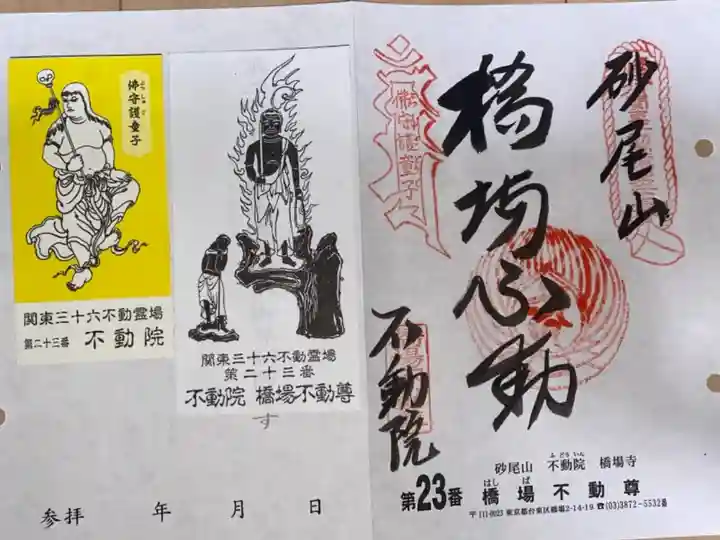 佛守護童子
ぶっしゅご
関東三十六不動霊場
第二十三番 不動院
関東三十六不動霊場
第二十三番
不動院 橋場不動尊
す
参拝 年 月 日
砂尾山
橋場不動
不動院
砂尾山 不動院 橋場寺
ふどういん
第23番 橋場不動尊
はしば
〒111-0023 東京都台東区橋場2-14-19 ☎(03)3872-5532番